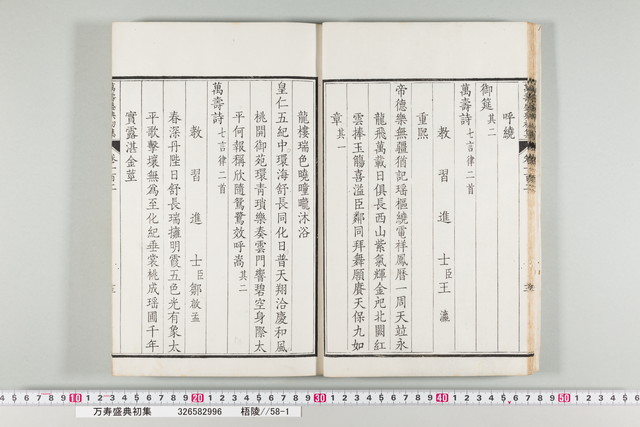 呼繞
御筵其二
萬壽詩七言律二首
教習進士臣王瀛
重熙
帝德樂無疆猶記瑶樞繞電祥鳳曆一周天竝永
龍飛萬載日俱長西山紫氣輝金戺北闕紅
雲捧玉觴喜溢臣鄰同拜舞願賡天保九如
章其一
龍樓瑞色曉曈曨沐浴
皇仁五紀中環海舒長同化日普天翔洽慶和風
桃開御苑環青瑣樂奏雲門響碧空身際太
平何報稱欣隨鴛鷺效呼嵩其二
萬壽詩七言律二首
教習進士臣鄒啟孟
春深丹陛日舒長瑞擁明霞五色光有象太
平歌擊壤無為至化紀垂裳桃成瑶圃千年
實露湛金莖
10 20 30 40 50
万寿盛典初集 326582996 梧陵//58-1